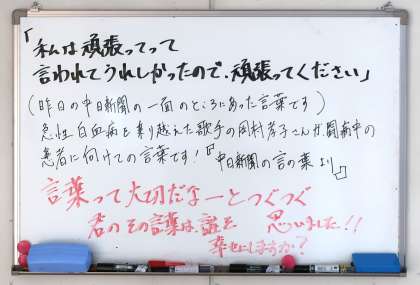 「私は頑張ってって
言われてうれしかったので、頑張ってください」
(昨日の中日新聞の一面のところにあった言葉です)
急性白血病を乗り越えた歌手の岡村孝子さんが闘病中の
患者に向けての言葉です!『中日新聞の言の葉より』
言葉って大切だなーとつくづく
思いました!!
君のその言葉は、誰を
幸せにしますか?